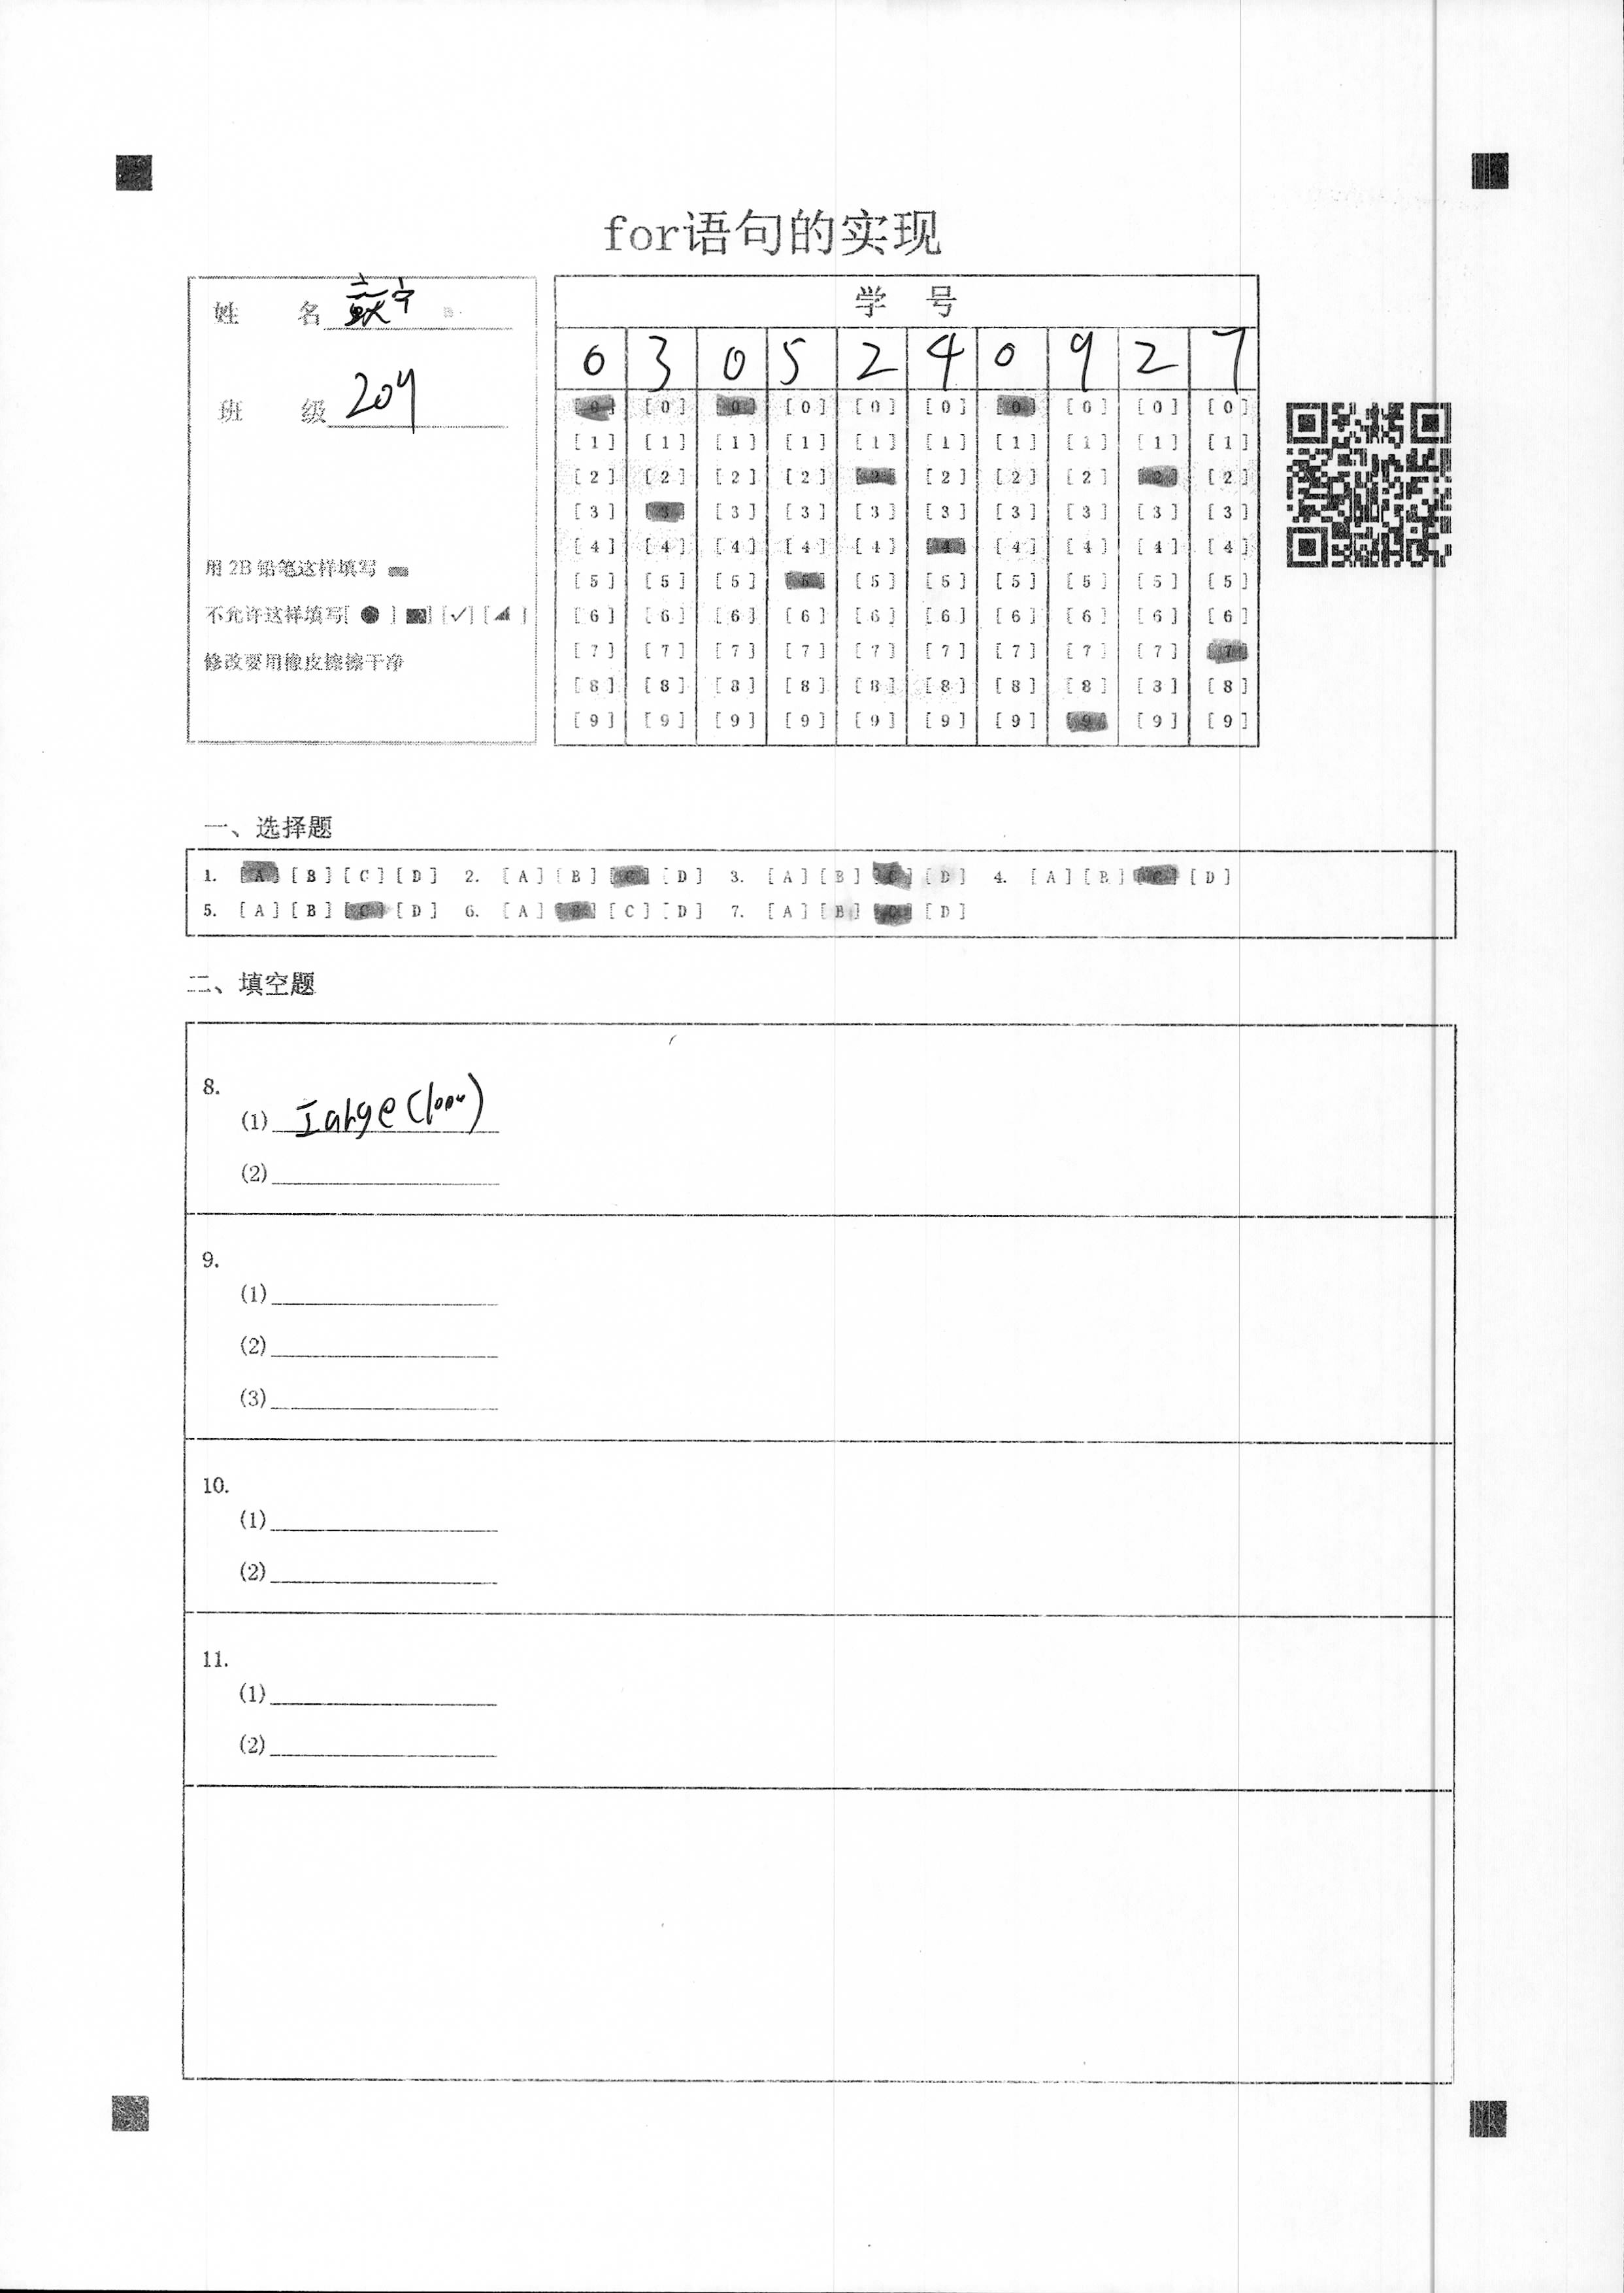 for语句的实现
姓 名
班 级 204
用 2B 铅笔这样填写
不允许这样填写[ ● ] [■] [✓] [◢ ]
修改要用橡皮擦擦干净
学 号
0 3 0 5 2 4 0 9 2 7
[0] [0] [0] [0] [0] [0] [0] [0] [0] [0]
[1] [1] [1] [1] [1] [1] [1] [1] [1] [1]
[2] [2] [2] [2] [2] [2] [2] [2] [2] [2]
[3] [3] [3] [3] [3] [3] [3] [3] [3] [3]
[4] [4] [4] [4] [4] [4] [4] [4] [4] [4]
[5] [5] [5] [5] [5] [5] [5] [5] [5] [5]
[6] [6] [6] [6] [6] [6] [6] [6] [6] [6]
[7] [7] [7] [7] [7] [7] [7] [7] [7] [7]
[8] [8] [8] [8] [8] [8] [8] [8] [8] [8]
[9] [9] [9] [9] [9] [9] [9] [9] [9] [9]
一、选择题
1. [A] [B] [C] [D] 2. [A] [B] [C] [D] 3. [A] [B] [C] [D] 4. [A] [B] [C] [D]
5. [A] [B] [C] [D] 6. [A] [B] [C] [D] 7. [A] [B] [C] [D]
二、填空题
8.
(1)
(2)
9.
(1)
(2)
(3)
10.
(1)
(2)
11.
(1)
(2)